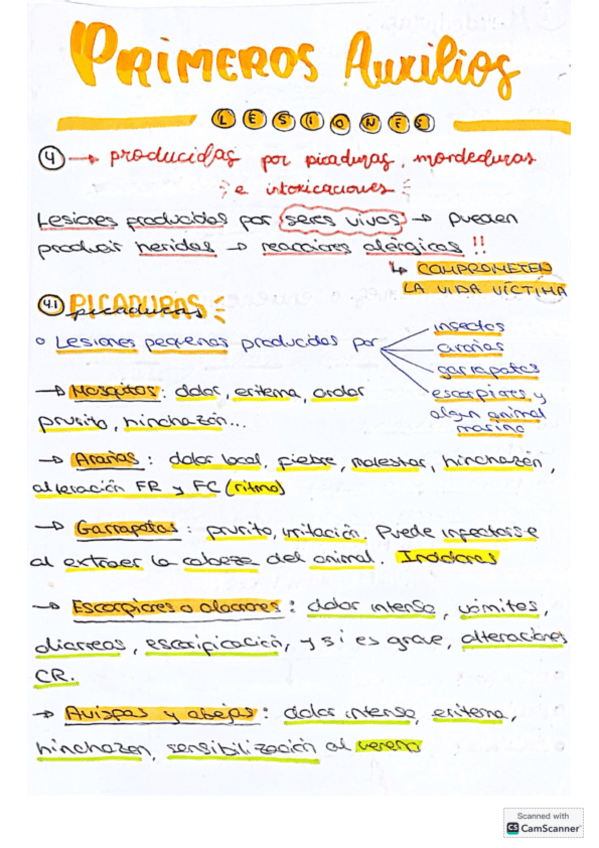 PRIMEROS Auxilios
LESIONES
4 → producidas por picaduras, mordeduras
e intoxicaciones
Lesiones producidas por seres vivos → pueden
producir heridas → reacciones alérgicas !!
↳ COMPROMETEN
LA VIDA VÍCTIMA
4.1 PICADURAS
picaduras
Lesiones pequeñas producidas por
insectos
arañas
garrapatas
escorpiones y
algún animal
marino
→ Mosquitos: dolor, eritema, ardor
prurito, hinchazón...
→ Arañas: dolor local, fiebre, malestar, hinchazón,
alteración FR y FC (ritmo)
→ Garrapatas: prurito, irritación. Puede infectarse
al extraer la cabeza del animal. Indoloras
→ Escorpiones o alacranes: dolor intenso, vómitos,
diarreas, escarificación, y si es grave, alteraciones
CR.
→ Avispas y abejas: dolor intenso, eritema,
hinchazón, sensibilización al veneno
Scanned with
CS CamScanner